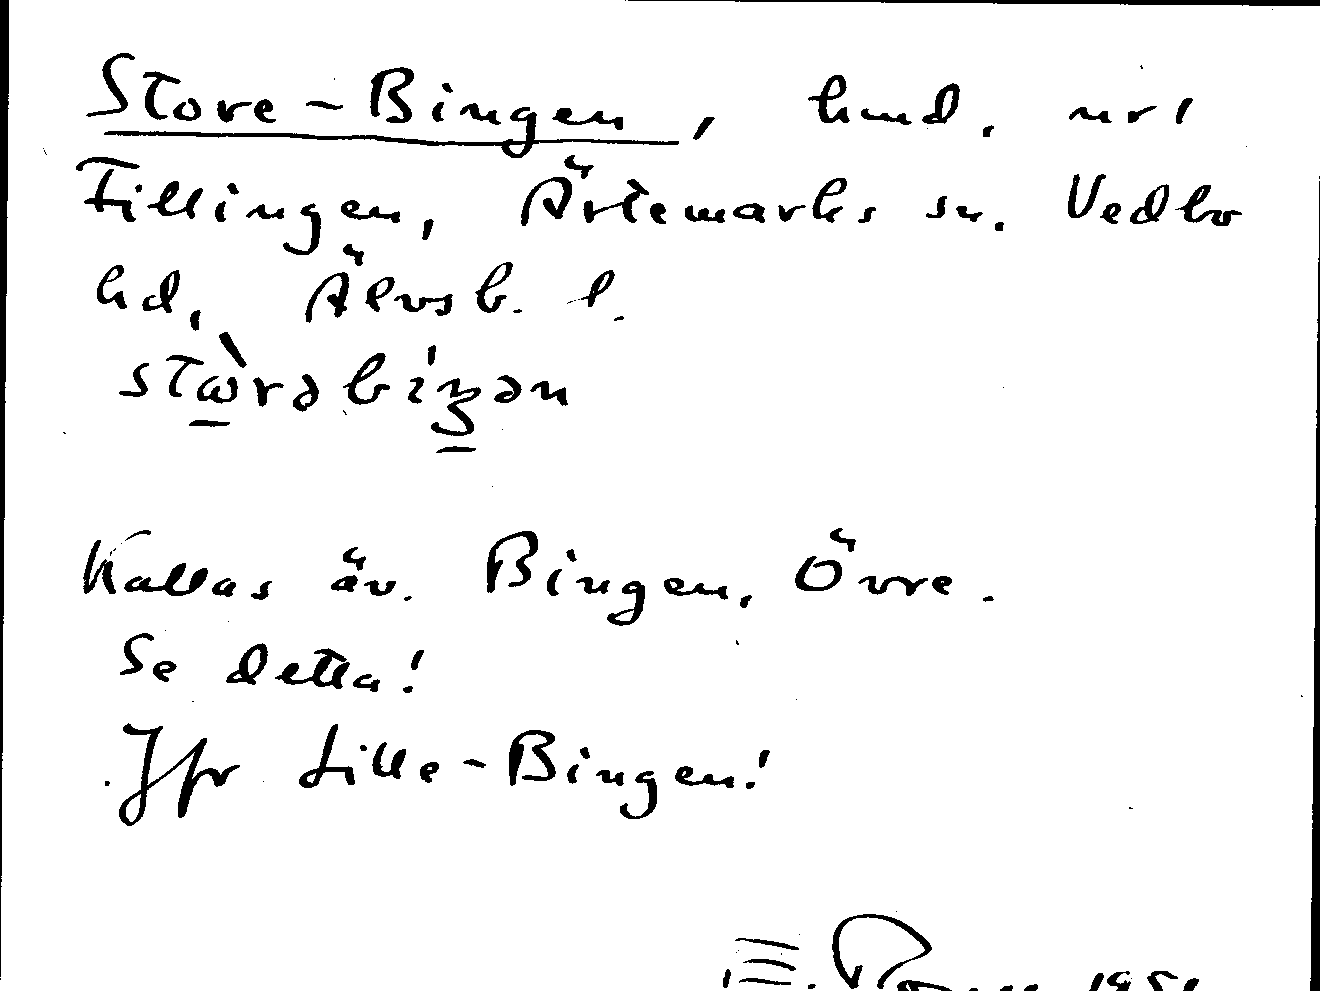 Store-Bingen, hmd. nr 1
Fillingen, Ärtemarks sn. Vedbo
hd, Älvsb. l.
stὼrəbiŋən
Kallas äv. Bingen, Övre.
Se detta!
Jfr Lille-Bingen!
E.